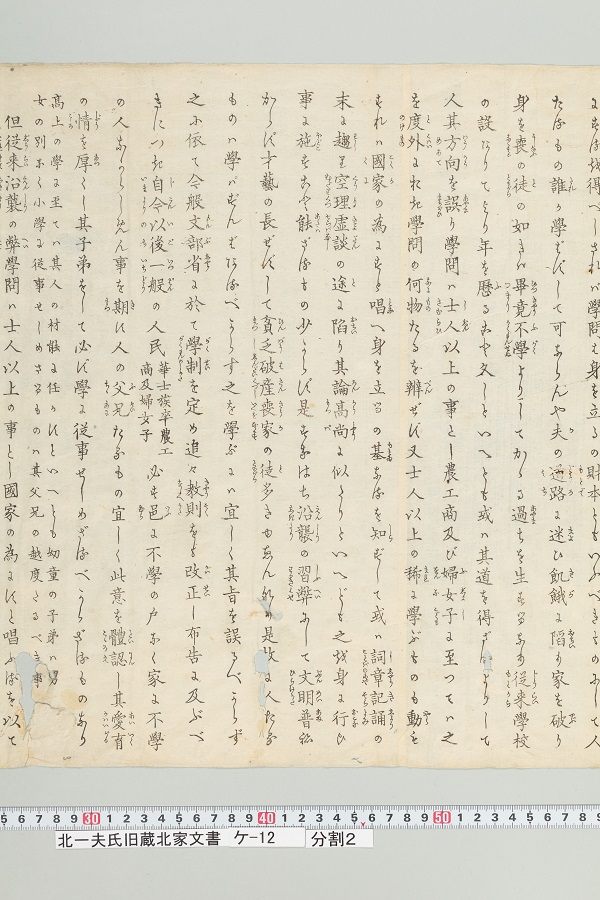 にあらば得べしされば學問は身を立るの財本ともいふべきものにして人
たるもの誰か學ばずして可ならんや夫の道路に迷ひ飢餓に陷り家を破り
身を喪の徒の如きは畢竟不學よりしてかゝる過ちを生ずるなり従来學校
の設ありてより年を歴ること久しといへども或は其道を得ざるよりして
人其方向を誤り學問は士人以上の事とし農工商及び婦女子に至つては之
を度外におき學問の何物たるを辨ぜず又士人以上の稀に學ぶものも動も
すれば國家の為にすと唱へ身を立るの基たるを知ずして或は詞章記誦の
末に趨り空理虚談の途に陷り其論髙尚に似たりといへども之を身に行ひ
事に施すこと能ざるもの少からず是すなはち沿襲の習弊にして文明普ね
からず才藝の長ぜずして貧乏破産喪家の徒多きゆゑんなり是故に人たる
ものは學ばずんばあるべからず之を學ぶには宜しく其旨を誤るべからず
之に依て今般文部省に於て學制を定め追々教則をも改正し布告に及ぶべ
きにつき自今以後一般の人民華士族卒農工商及婦女子必ず邑に不學の戸なく家に不學
の人なからしめん事を期す人の父兄たるもの宜しく此意を體認其愛育
の情を厚其子弟をして必ず學に従事せしめざるべからざるものなり
髙上の學に至ては其人の材能に任かすといへども幼童の子弟は男
女の別なく小學に従事せしめざるものは其父兄の越度たるべき事
但従来沿襲の弊學問は士人以上の事とし國家の為にすと唱ふるを以て
北一夫氏旧蔵北家文書 ケ-12 分割2